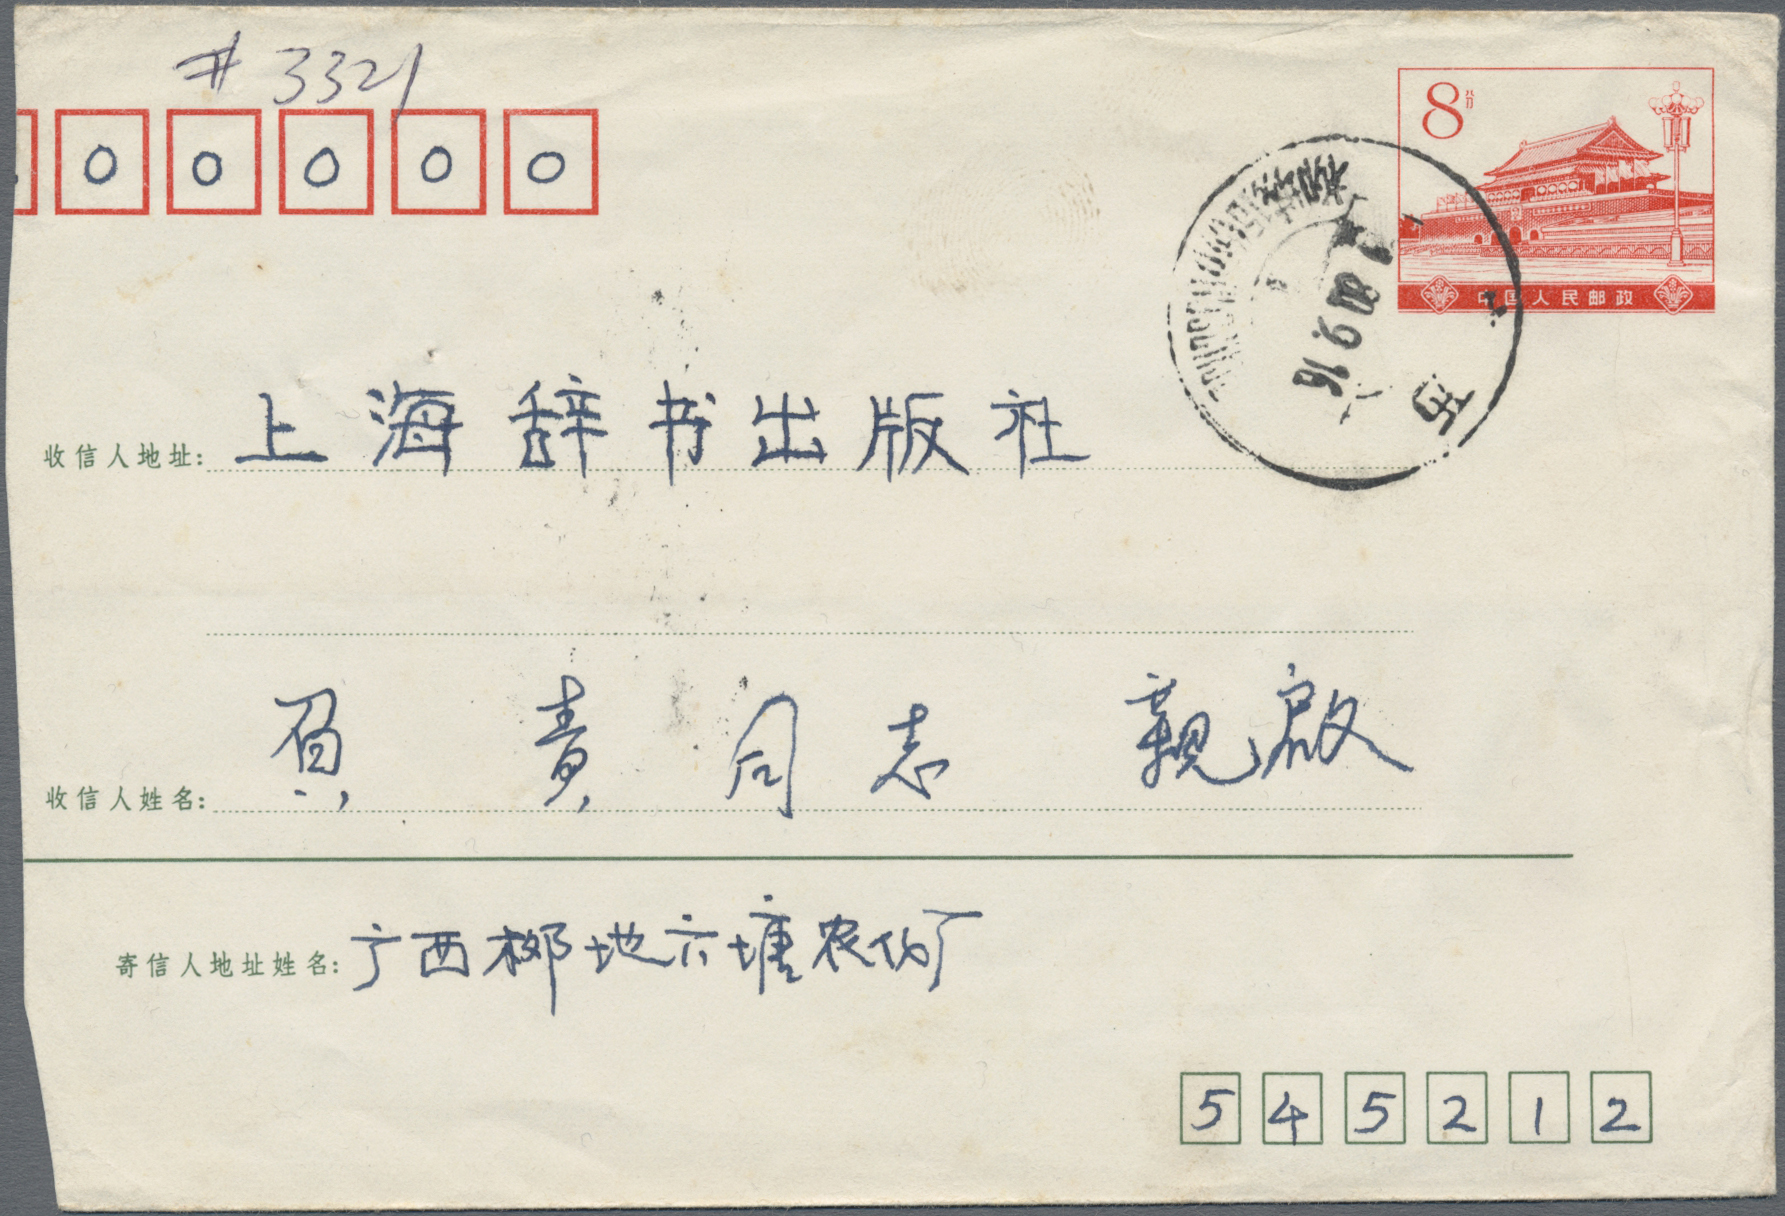 #3321
0 0 0 0 0
8
八分
中国人民邮政
80.9.16
收信人地址: 上海辞书出版社
收信人姓名: 負責同志 親啟
寄信人地址姓名: 广西柳地六塘农机厂
5 4 5 2 1 2